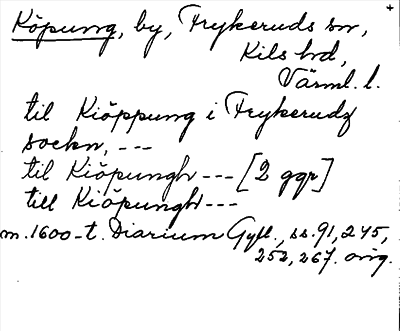 Köpung, by, Frykeruds sn,
Kils hd,
Värml. l.
til Kiöppung i Frykerudz
sockn, ---
til Kiöpungh --- [2 ggr]
till Kiöpungh ---
m. 1600-t. Diarium Gyll., ss. 91, 245,
252, 267. orig.